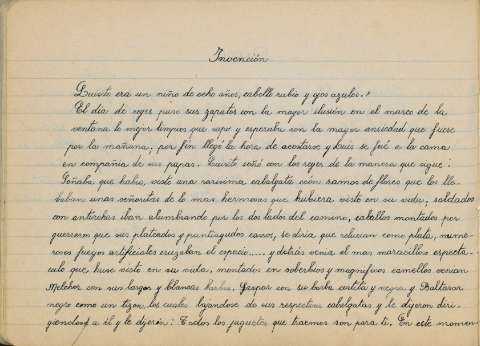 Invención
Luisito era un niño de ocho años, cabello rubio y ojos azules.
El día de reyes puso sus zapatos con la mayor ilusión en el marco de la
ventana lo mejor limpios que supo y esperaba con la mayor ansiedad que fuese
por la mañana, por fin llegó la hora de acostarse y Luis se fué a la cama
en compañia de sus papas. Luisito soñó con los reyes de la manera que sigue:
Soñaba que habia visto una rarisima cabalgata con ramos de flores que los lle-
baban unas señoritas de lo mas hermosas que hubiera visto en su vida, soldados
con antorchas iban alumbrando por los dos lados del camino, caballos montados por
guerreros que sus plateados y puntiagudos cascos, se diria que relucian como plata, nume-
rosos fuegos artificiales cruzaban el espacio.... y detrás venia el mas maravilloso especta-
culo que hube visto en su vida, montados en soberbios y magnificos camellos venian
Melchor con sus largas y blancas barbas, Gaspar con su barba cortita y negra y Baltasar
negro como un tizon, los cuales bajandose de sus respectivas cabalgatas y le dijeron diri-
giendose a él y le dijerón: Todos los juguetes que traemos son para ti. En este momen